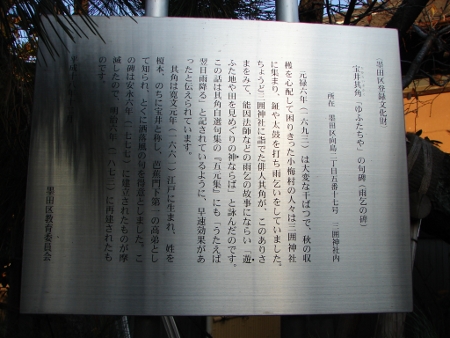 墨田区登録文化財
宝井其角「ゆふだちや」の句碑（雨乞の碑）
所在　墨田区向島二丁目五番十七号　三囲神社内
元禄六年（一六九三）は大変な干ばつで、秋の収
穫を心配して困りきった小梅村の人々は三囲神社
に集まり、鉦や太鼓を打ち雨乞いをしていました。
ちょうど三囲神社に詣でた俳人其角が、このありさ
まをみて、能因法師などの雨乞の故事にならい「遊
ふた地や田を見めぐりの神ならば」と詠んだのです。
この話は其角自選句集の『五元集』にも「うたえば
翌日雨降る」と記されているように、早速効果があ
ったと伝えられています。
其角は寛文元年（一六六一）江戸に生まれ、姓を
榎本、のちに宝井と称し、芭蕉門下第一の高弟とし
て知られ、とくに洒落風の句を得意としました。こ
の碑は安永六年（一七七七）に建立されたものが摩
滅したので、明治六年（一八七三）に再建されたも
のです。
墨田区教育委員会